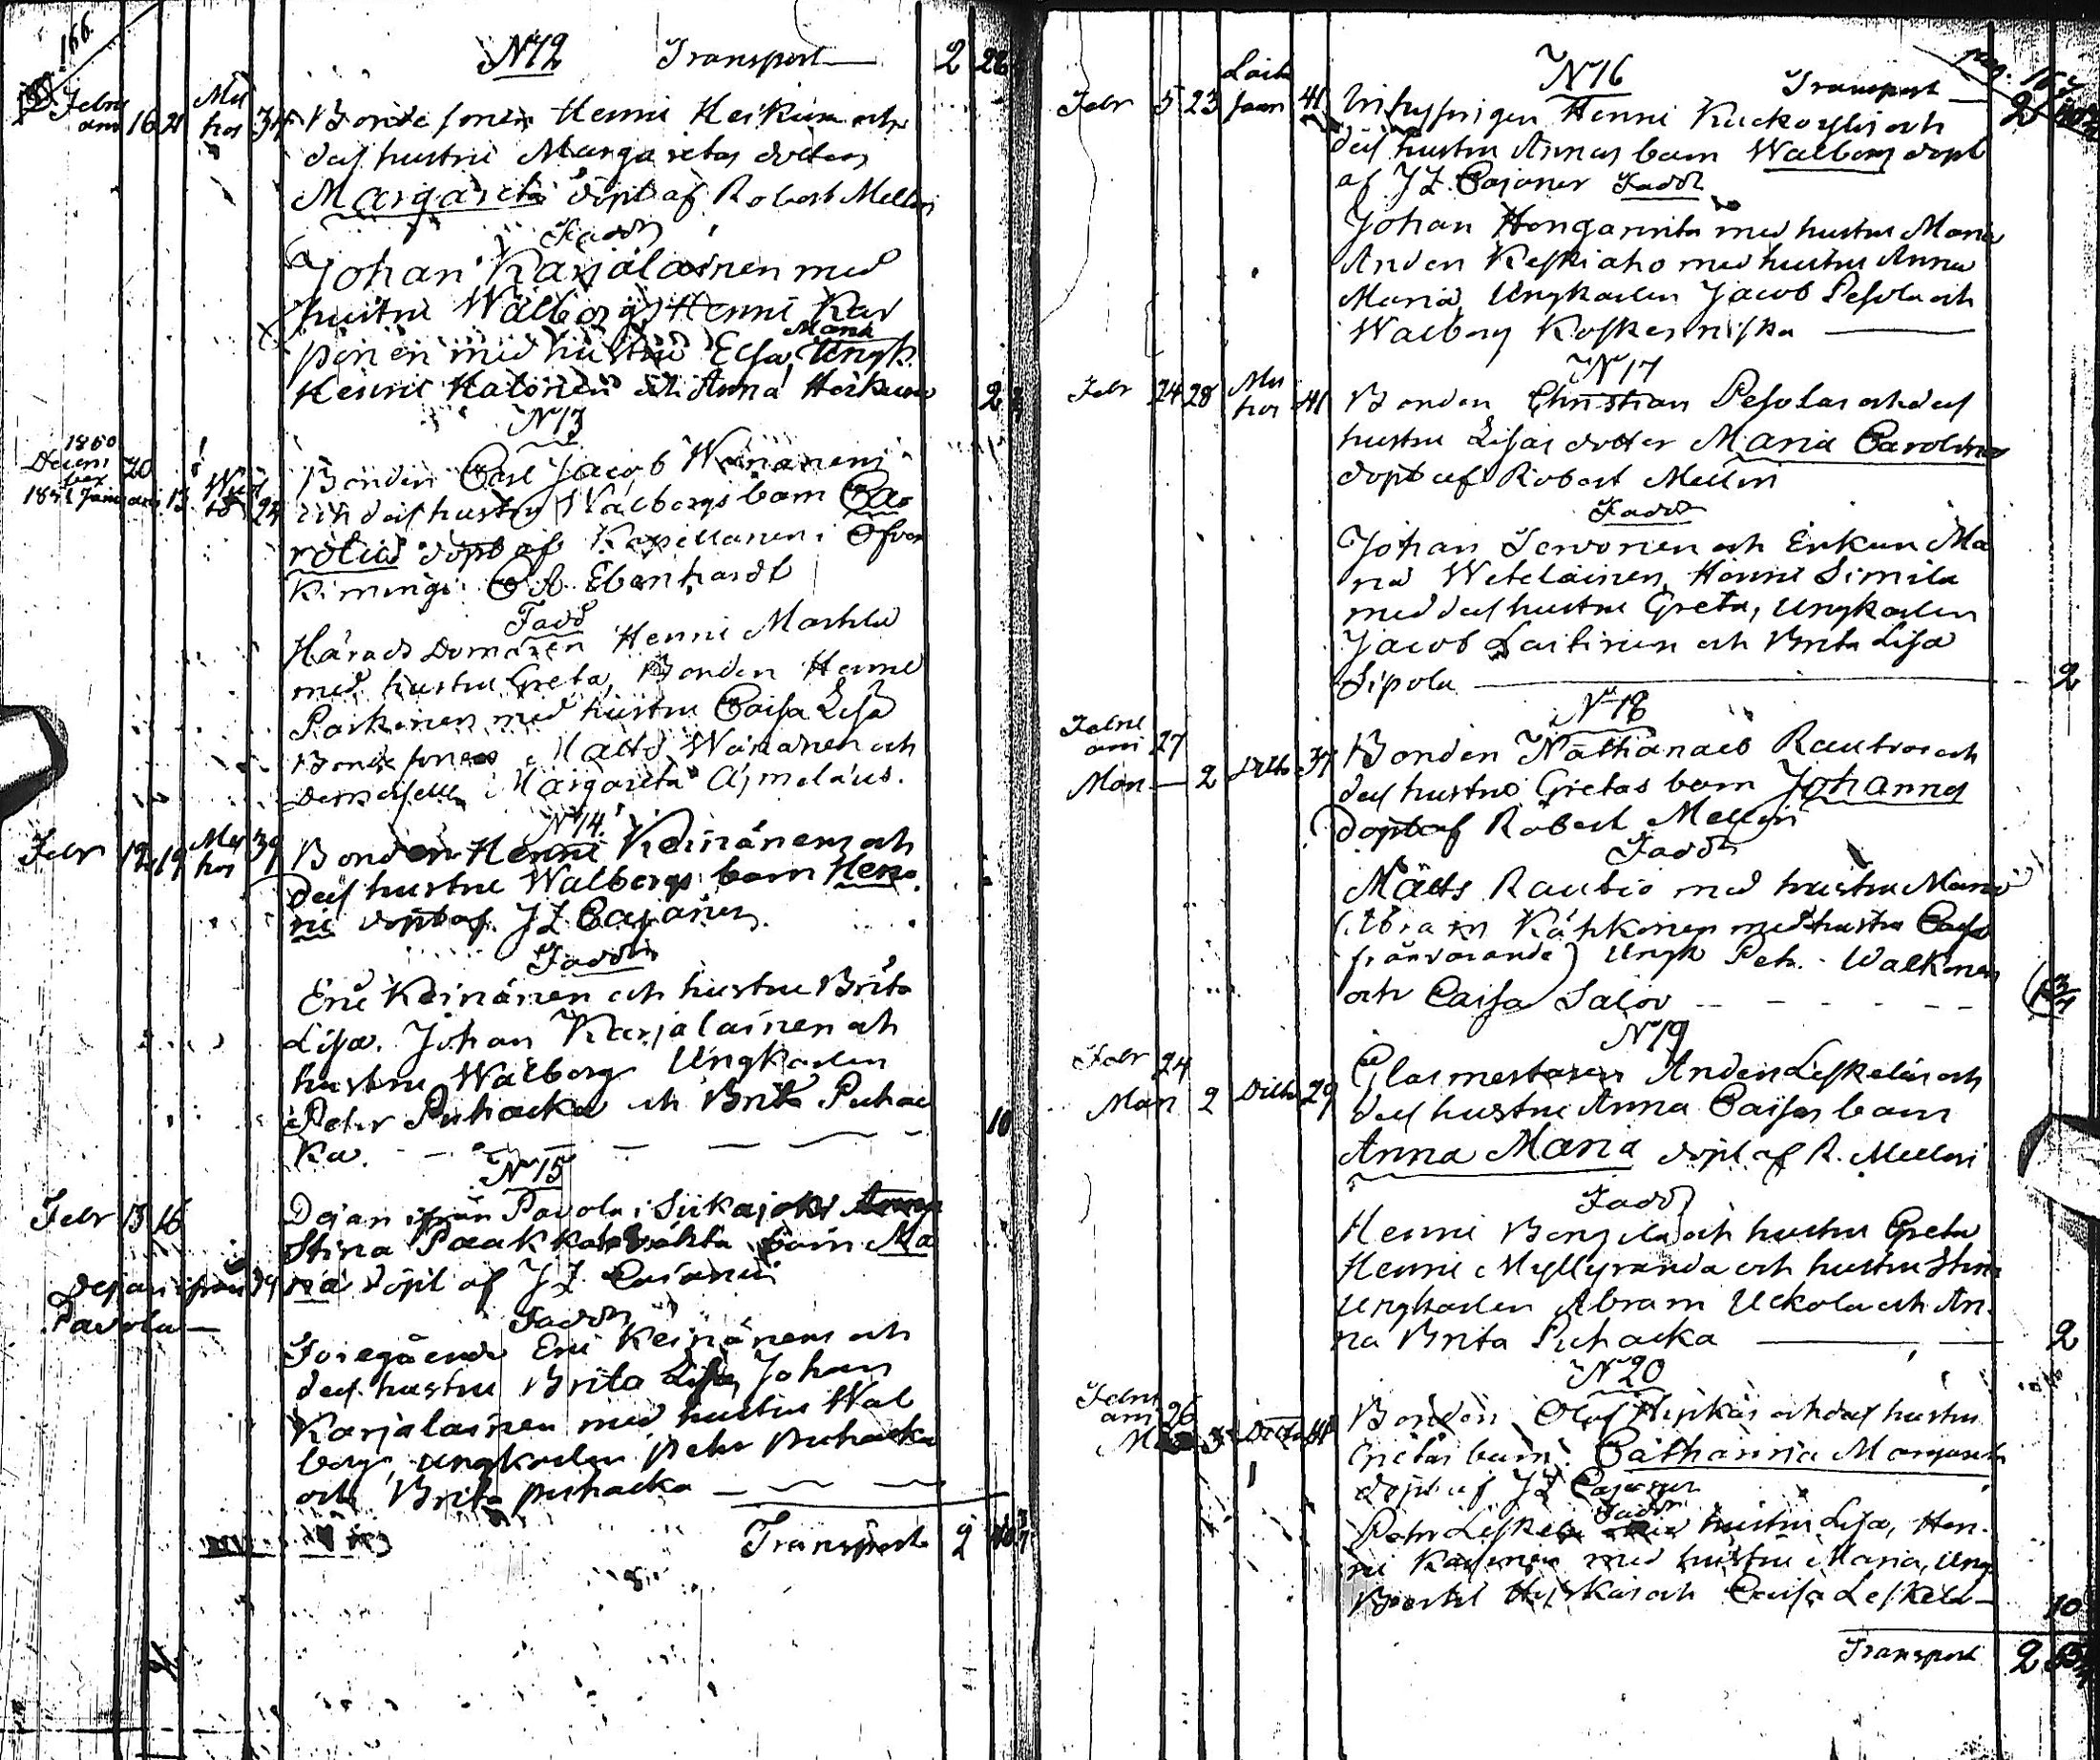 166.
N12 Transport 2 26
Febru
ari 16 21 Mu
hos 34 Bonde sonen Henric Heikinen och
dess hustru Margaretas dotter
Margareta döpt af Robert Mellin
Fadd
Johan Karjalainen med
hustru Walborg, Henric Kar
Mark
pinen med hustru Elsa, Ungk.
Henric Halonen och Anna Heikinen 2
N13
1850
Decem
ber 20
1851 Januari 13 24
Bonden Carl Jacob Wänänens
och dess hustru Walborgs barn Ca
rolus döpt af Kapellanen i Öfver
Kiminge C A Eberhardt
Fadd
Härads Domaren Henric Markela
med hustru Greta, Bonden Henric
Parkinen med hustru Caisa Lisa
Bonde sonen Matts Wänänen och
Demoiselle Margareta Ajmelæus.
N14.
Febr 12 19 Mu
hos 39 Bonden Henric Keinänens och
dess hustru Walborgs barn Hen
ric döpt af J L Cajanus
Fadd
Eric Keinänen och hustru Brita
Lisa. Johan Karjalainen och
hustru Walborg Ungkarlen
Petr Puhacka och Brita Puhac
ka. 10
N15
Febr 13 16 Dejan ifrån Pavola i Siikajoki
Stina Paakkola barn Ma
Dejan ifrån ria döpt af J L Cajanus
Pavola
Fadd
Foregående Eric Keinänens och
dess hustru Brita Lisa, Johan
Karjalainen med hustru Wal
borg, ungkarlen Petr Puhacka
och Brita Puhacka
Transport 2
pag. 167
N16 Transport 2
Febr 5 23 41 Inhysingen Henric Kuckohlis och
dess hustru Annas barn Walborg döpt
af J L Cajanus Fadd
Johan Hongarinta med hustru Maria
Anders Keskiaho med hustru Anna
Maria, Ungkarlen Jacob Pesola och
Walborg Koskenniska
N17
Febr 24 28 Mu
hos 41 Bonden Christian Pesolas och dess
hustru Lisas dotter Maria Carolina
döpt af Robert Mellin
Fadd
Johan Tervonen och Enkan Ma
ria Wetelainen, Henric Simila
med dess hustru Greta, Ungkarlen
Jacob Laitinen och Brita Lisa
Sipola 2
N18
Febru
ari 27
Mars 2 Ditto 37 Bonden Nathanael Rautios och
dess hustru Gretas barn Johanna
Döpt af Robert Mellin
Fadd
Matts Rautio med hustru Maria
(Abram Kähkönen med hustru Caisa
frånvarande) Ungk Petr. Walkonen
och Caisa Salov
N19
Febr 24
Mars 2 Ditto 29 Glasmestaren Anders Leskeläs och
dess hustru Anna Caisas barn
Anna Maria döpt af R. Mellin
Fadd
Henric Bengila och hustru Greta
Henric Myllyranda och hustru Stina
Ungkarlen Abram Uckola och An-
na Brita Puhacka 2
N20
Febru
ari 26
Ditto Bonden Olof Hyrkäs och dess hustru
Gretas barn Catharina Margareta
döpt af J L Cajanus
Fadd
Petr Leskelä med hustru Lisa, Hen-
ric Karinen med hustru Maria, Ung
Bertel Hyrkäs och Caisa Leskelä 10
Transport 2